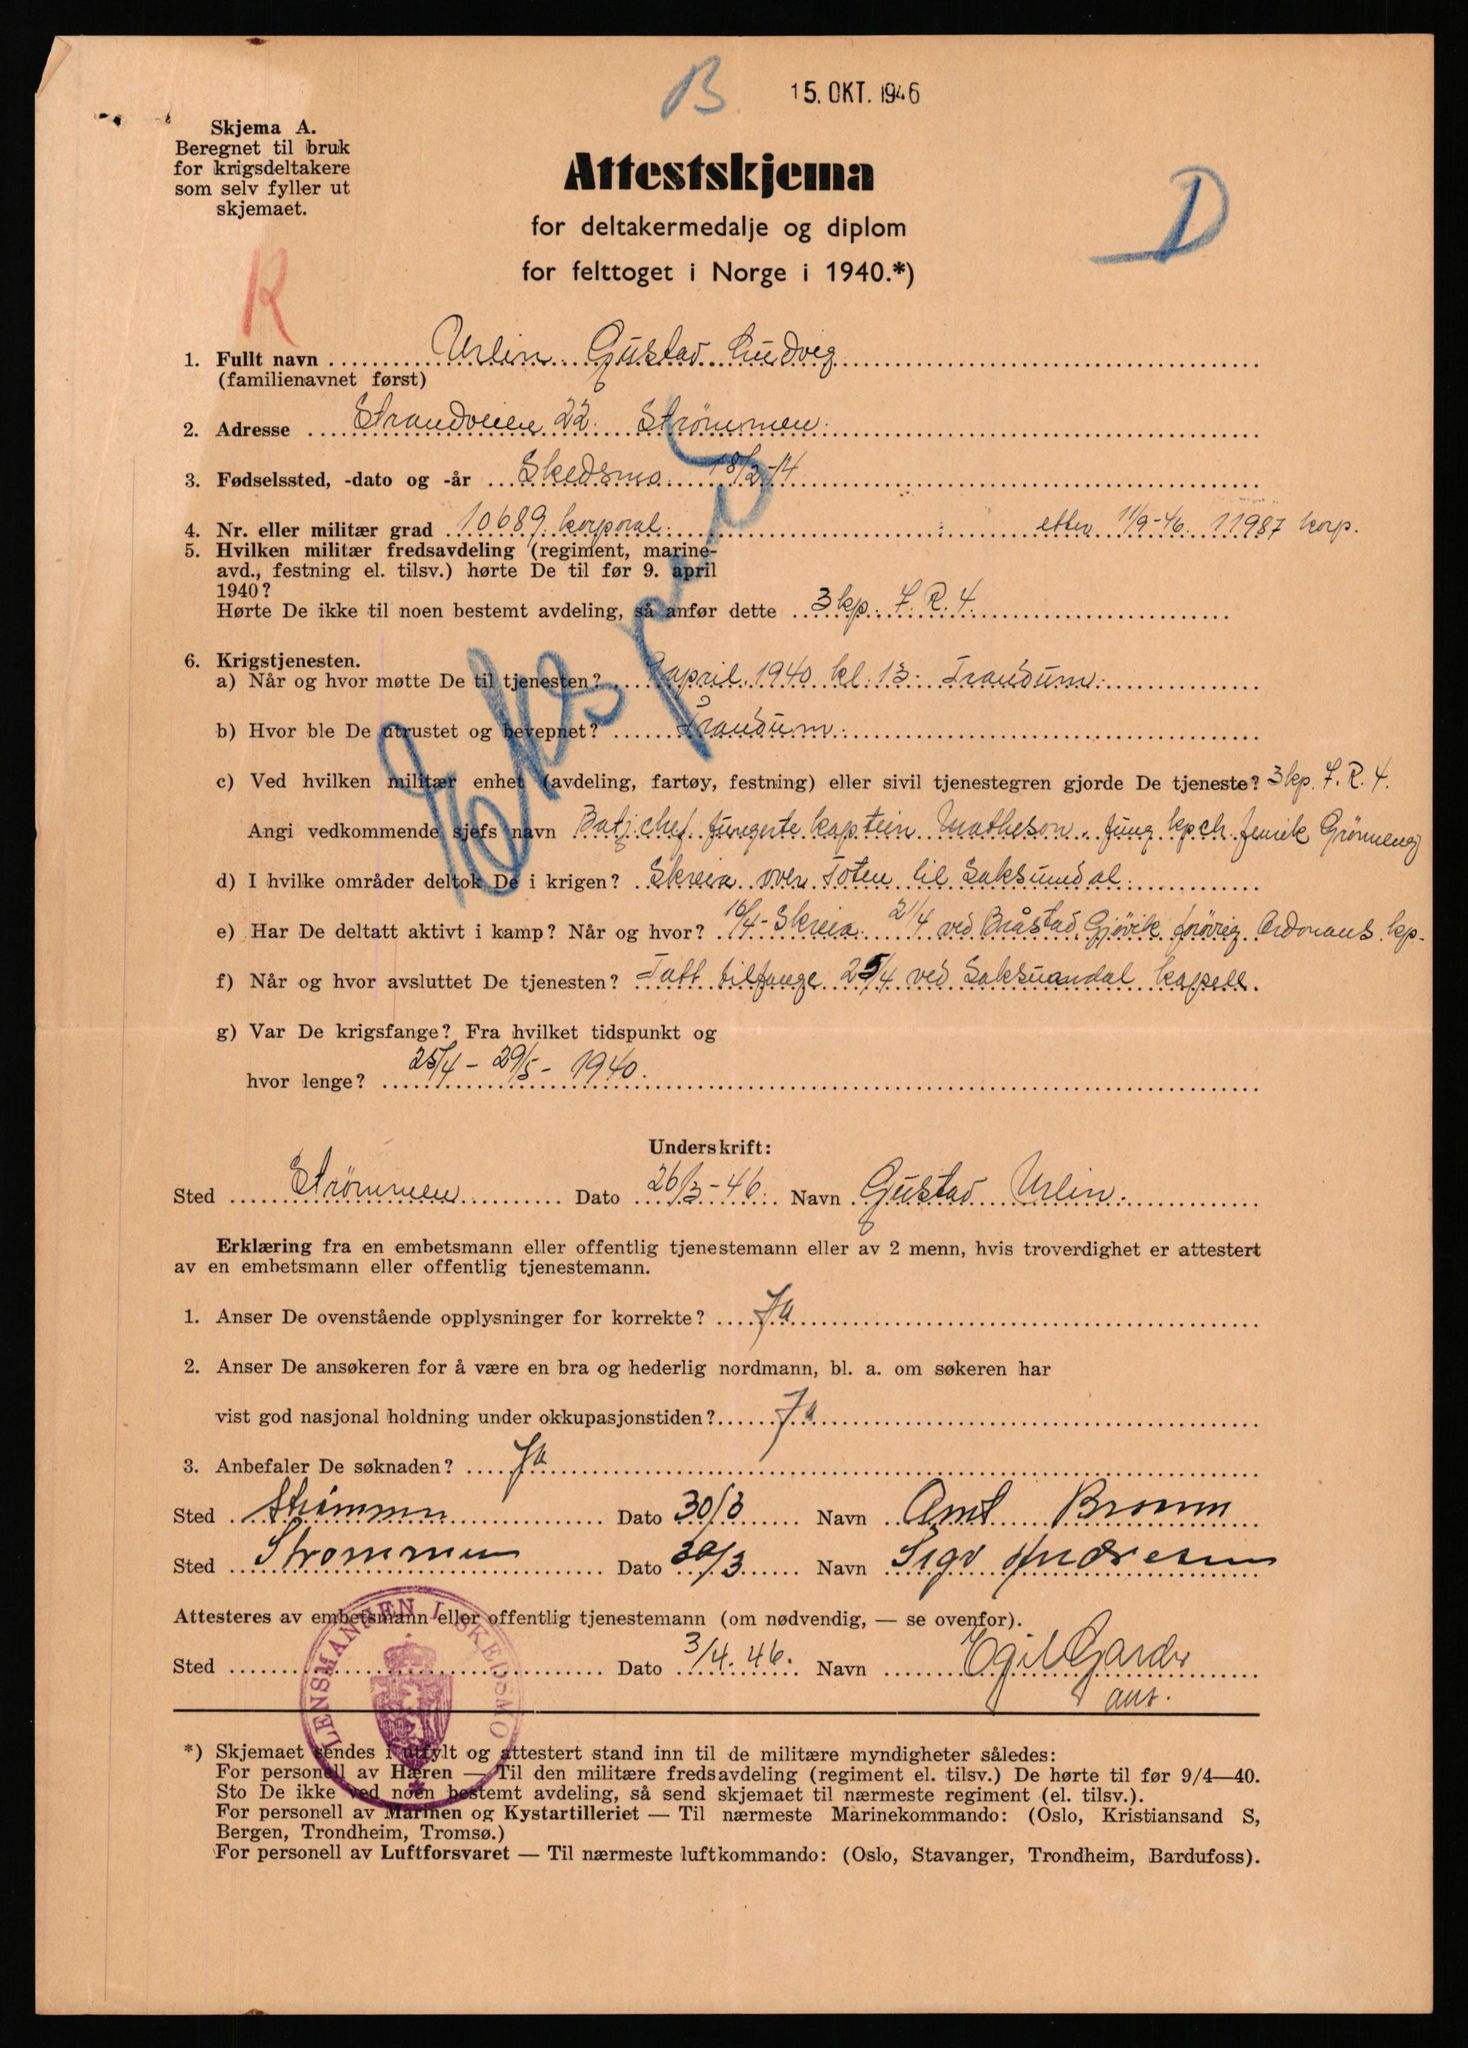 B
15. OKT. 1946
Skjema A.
Beregnet til bruk
for krigsdeltakere
som selv fyller ut
skjemaet.
Attestskjema
for deltakermedalje og diplom
for felttoget i Norge i 1940.*)
D
R
1. Fullt navn Urlin Gustav Ludvig
(familienavnet først)
2. Adresse Strandveien 22. Strømmen.
3. Fødselssted, -dato og -år Skedsmo 18/2-14
4. Nr. eller militær grad 10689 korporal. etter 11/9-46. 11987 korp.
5. Hvilken militær fredsavdeling (regiment, marine-
avd., festning el. tilsv.) hørte De til før 9. april
1940?
Hørte De ikke til noen bestemt avdeling, så anfør dette 3 kp. I. R. 4.
6. Krigstjenesten.
a) Når og hvor møtte De til tjenesten? 9 april 1940 kl. 13. Trandum.
b) Hvor ble De utrustet og bevepnet? Trandum.
c) Ved hvilken militær enhet (avdeling, fartøy, festning) eller sivil tjenestegren gjorde De tjeneste? 3 kp. I. R. 4.
Angi vedkommende sjefs navn Batj chef fungerte kaptein Matheson. fung kpch. fenrik Grønneng
d) I hvilke områder deltok De i krigen? Skreia over Toten til Saksumdal.
e) Har De deltatt aktivt i kamp? Når og hvor? 16/4 - Skreia. 21/4 ved Bråstad Gjøvik forøvrig Ordonans kp.
f) Når og hvor avsluttet De tjenesten? Tatt tilfange 25/4 ved Saksumdal kapell.
g) Var De krigsfange? Fra hvilket tidspunkt og
hvor lenge? 25/4 - 29/5 - 1940.
Underskrift:
Sted Strømmen Dato 26/3-46. Navn Gustav Urlin.
Erklæring fra en embetsmann eller offentlig tjenestemann eller av 2 menn, hvis troverdighet er attestert
av en embetsmann eller offentlig tjenestemann.
1. Anser De ovenstående opplysninger for korrekte? Ja
2. Anser De ansøkeren for å være en bra og hederlig nordmann, bl. a. om søkeren har
vist god nasjonal holdning under okkupasjonstiden? Ja
3. Anbefaler De søknaden? Ja
Sted Strømmen Dato 30/3 Navn Arnt
Sted Strømmen Dato 30/3 Navn Sigv Andresen
Attesteres av embetsmann eller offentlig tjenestemann (om nødvendig, — se ovenfor).
Sted Dato 3/4. 46. Navn Egil Garder
ass.
LENSMANNEN I SKEDSMO
*) Skjemaet sendes i utfylt og attestert stand inn til de militære myndigheter således:
For personell av Hæren — Til den militære fredsavdeling (regiment el. tilsv.) De hørte til før 9/4—40.
Sto De ikke ved noen bestemt avdeling, så send skjemaet til nærmeste regiment (el. tilsv.).
For personell av Marinen og Kystartilleriet — Til nærmeste Marinekommando: (Oslo, Kristiansand S,
Bergen, Trondheim, Tromsø.)
For personell av Luftforsvaret — Til nærmeste luftkommando: (Oslo, Stavanger, Trondheim, Bardufoss).